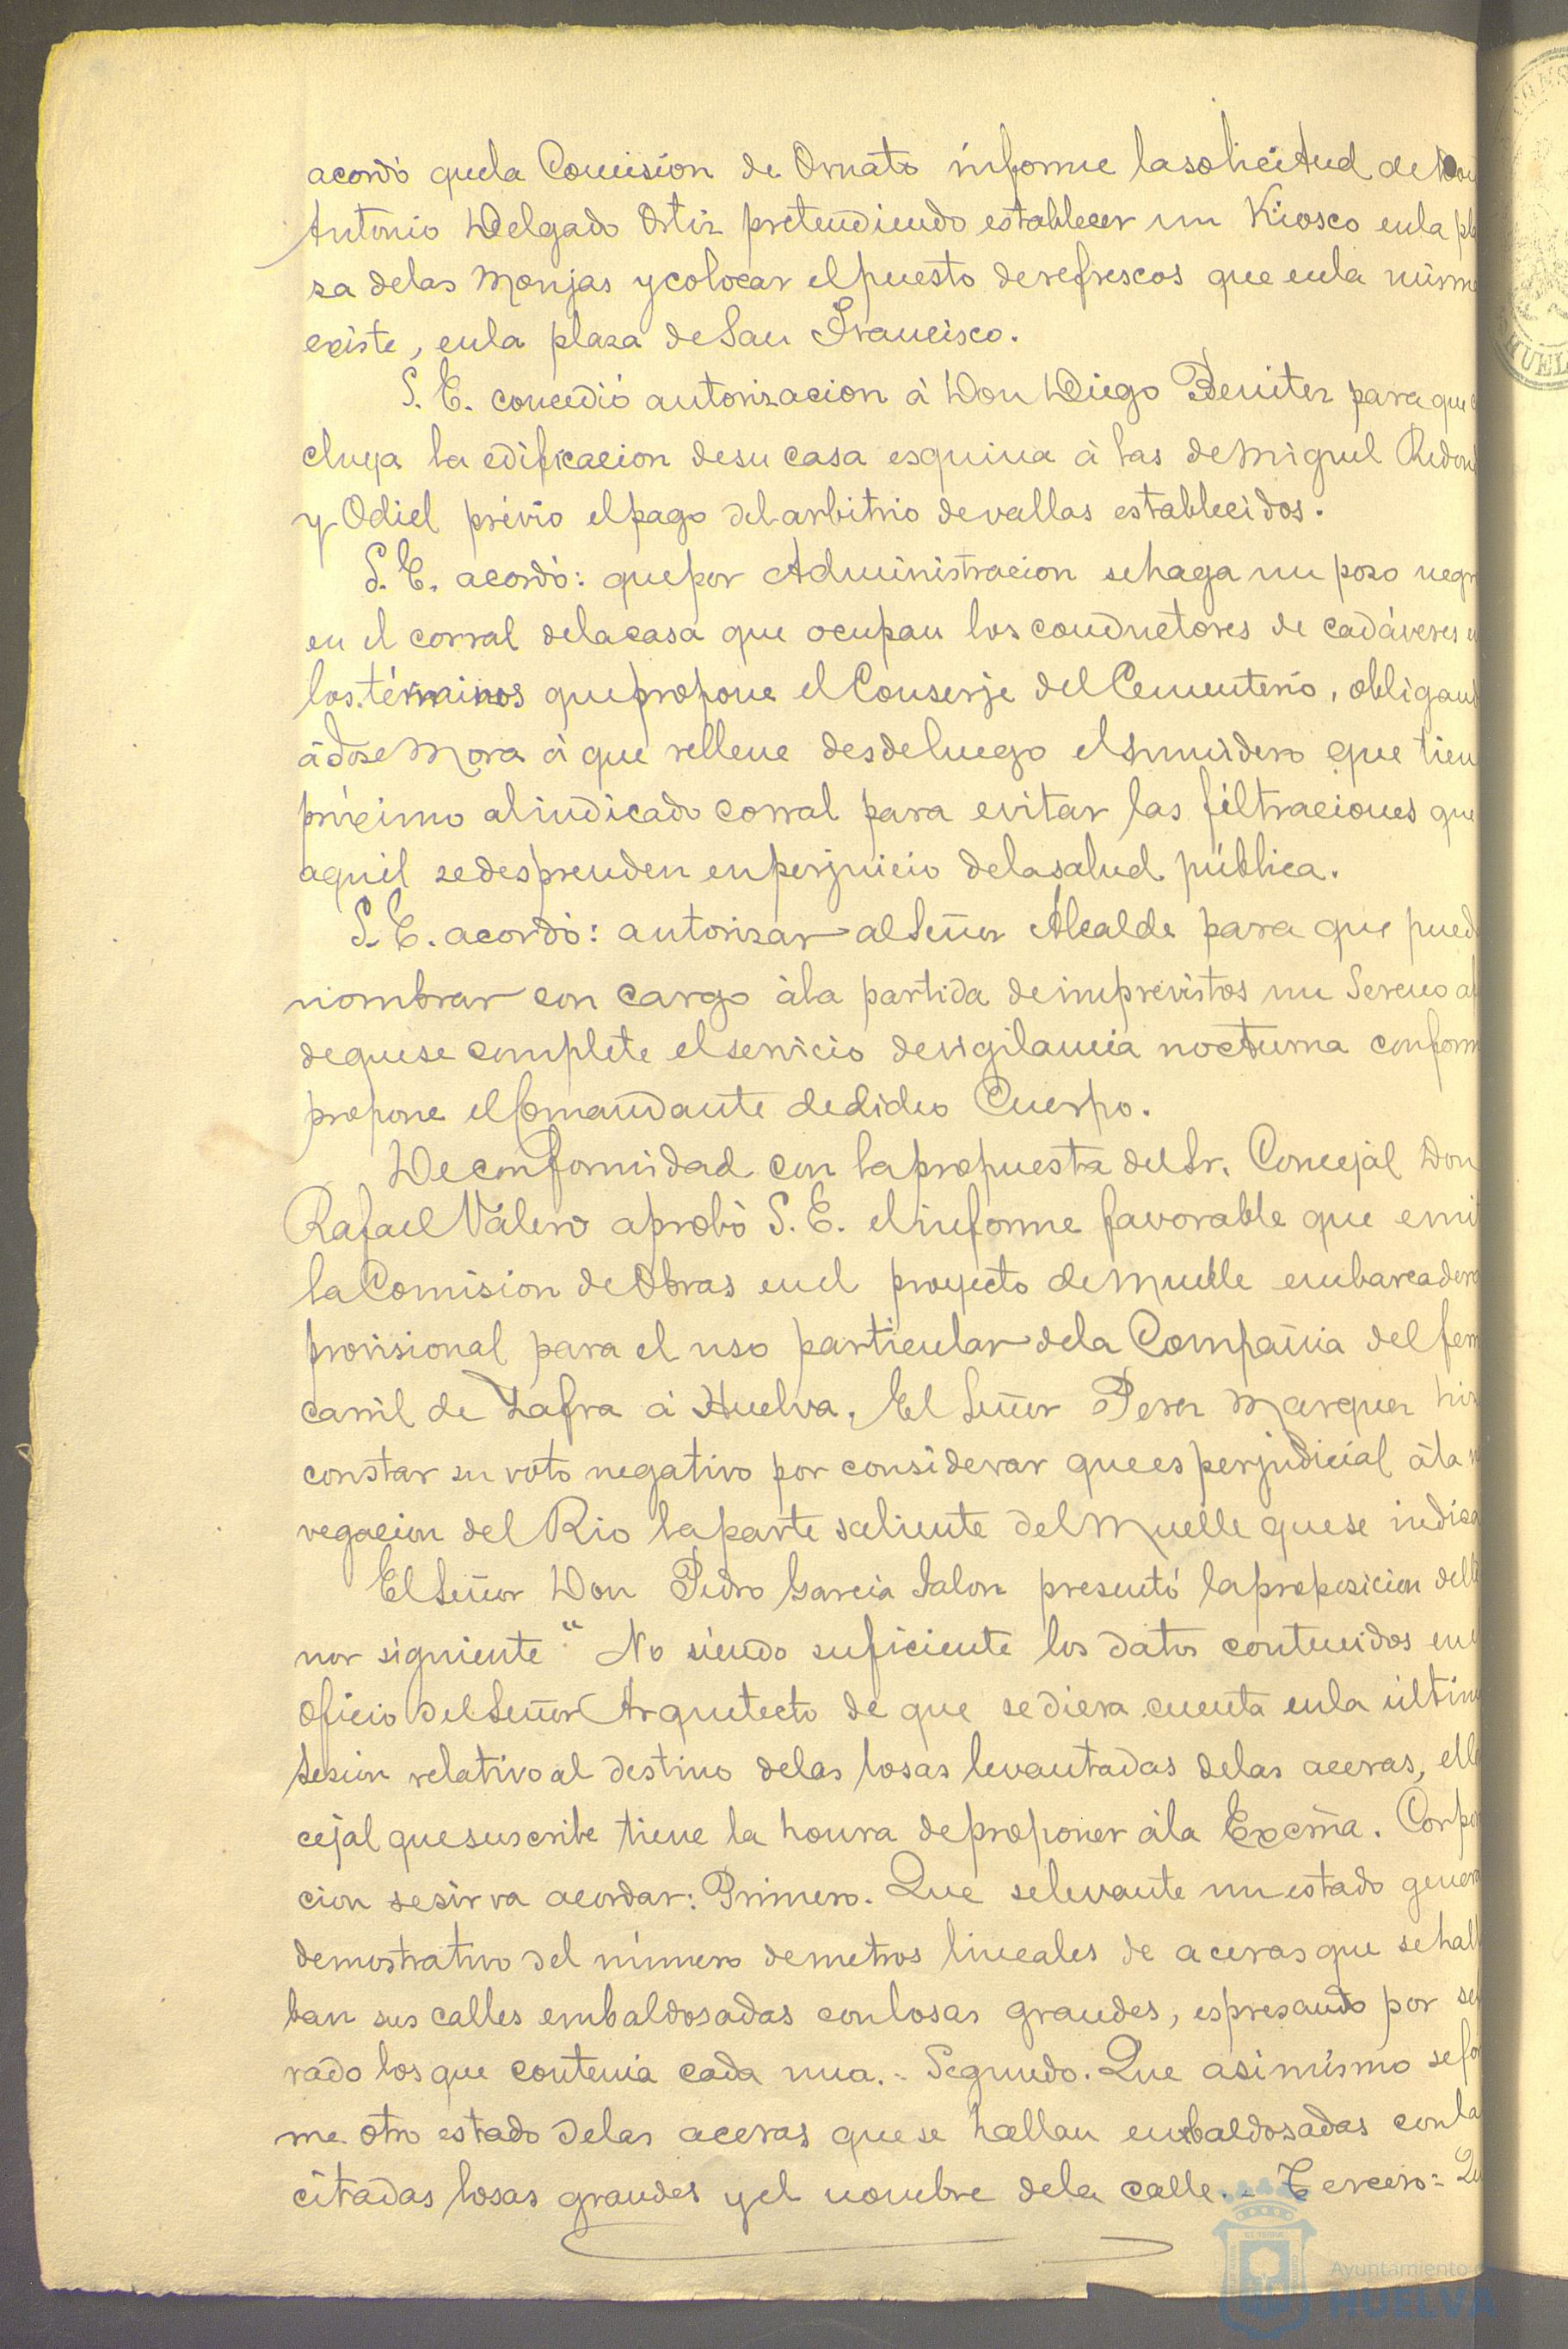 acordó que la Comision de Ornato informe la solicitud de Don
Antonio Delgado Ortiz pretendiendo establecer un Kiosco en la pla
za de las Monjas y colocar el puesto de refrescos que en la misma
existe, en la plaza de San Francisco.
S. E. concedió autorizacion á Don Diego Benitez para que
cluya la edificacion de su casa esquina á las de Miguel Redon
y Odiel prévio el pago del arbitrio de vallas establecidos.
S. E. acordó: que por Administracion se haga un pozo negr
en el corral de la casa que ocupan los conductores de cadáveres e
los términos que propone el Conserje del Cementerio, obligan
ádose Mora á que rellene desde luego el sumidero que tien
próximo al indicado corral para evitar las filtraciones que
aquel se desprenden en perjuicio de la salud pública.
S. E. acordó: autorizar al Señor Alcalde para que pued
nombrar con cargo á la partida de imprevistos un Sereno a
de que se complete el servicio de vigilancia nocturna conform
propone el Comandante de dicho Cuerpo.
De conformidad con la propuesta del Sr. Concejal Don
Rafael Valero aprobó S. E. el informe favorable que emi
la Comision de Obras en el proyecto de Muelle embarcadero
provisional para el uso particular de la Compañia del ferr
carril de Zafra á Huelva. El Señor Perez Marquez hiz
constar su voto negativo por considerar que es perjudicial á la
vegacion del Rio la parte saliente del Muelle que se indica
El Señor Don Pedro Garcia Jalon presentó la proposicion del te
nor siguiente "No siendo suficiente los datos contenidos en
oficio del Señor Arquitecto de que se diera cuenta en la última
sesion relativo al destino de las losas levantadas de las aceras, el
cejal que suscribe tiene la honra de proponer á la Excma. Corpo
cion se sirva acordar: Primero. Que se levante un estado genera
demostrativo del número de metros lineales de aceras que se hall
ban sus calles embaldosadas con losas grandes, espresando por se
rado los que contenia cada una. - Segundo. Que asimismo se for
me otro estado de las aceras que se hallan embaldosadas con la
citadas losas grandes y el nombre de la calle. - Tercero = Qu
Ayuntamiento
HUELVA